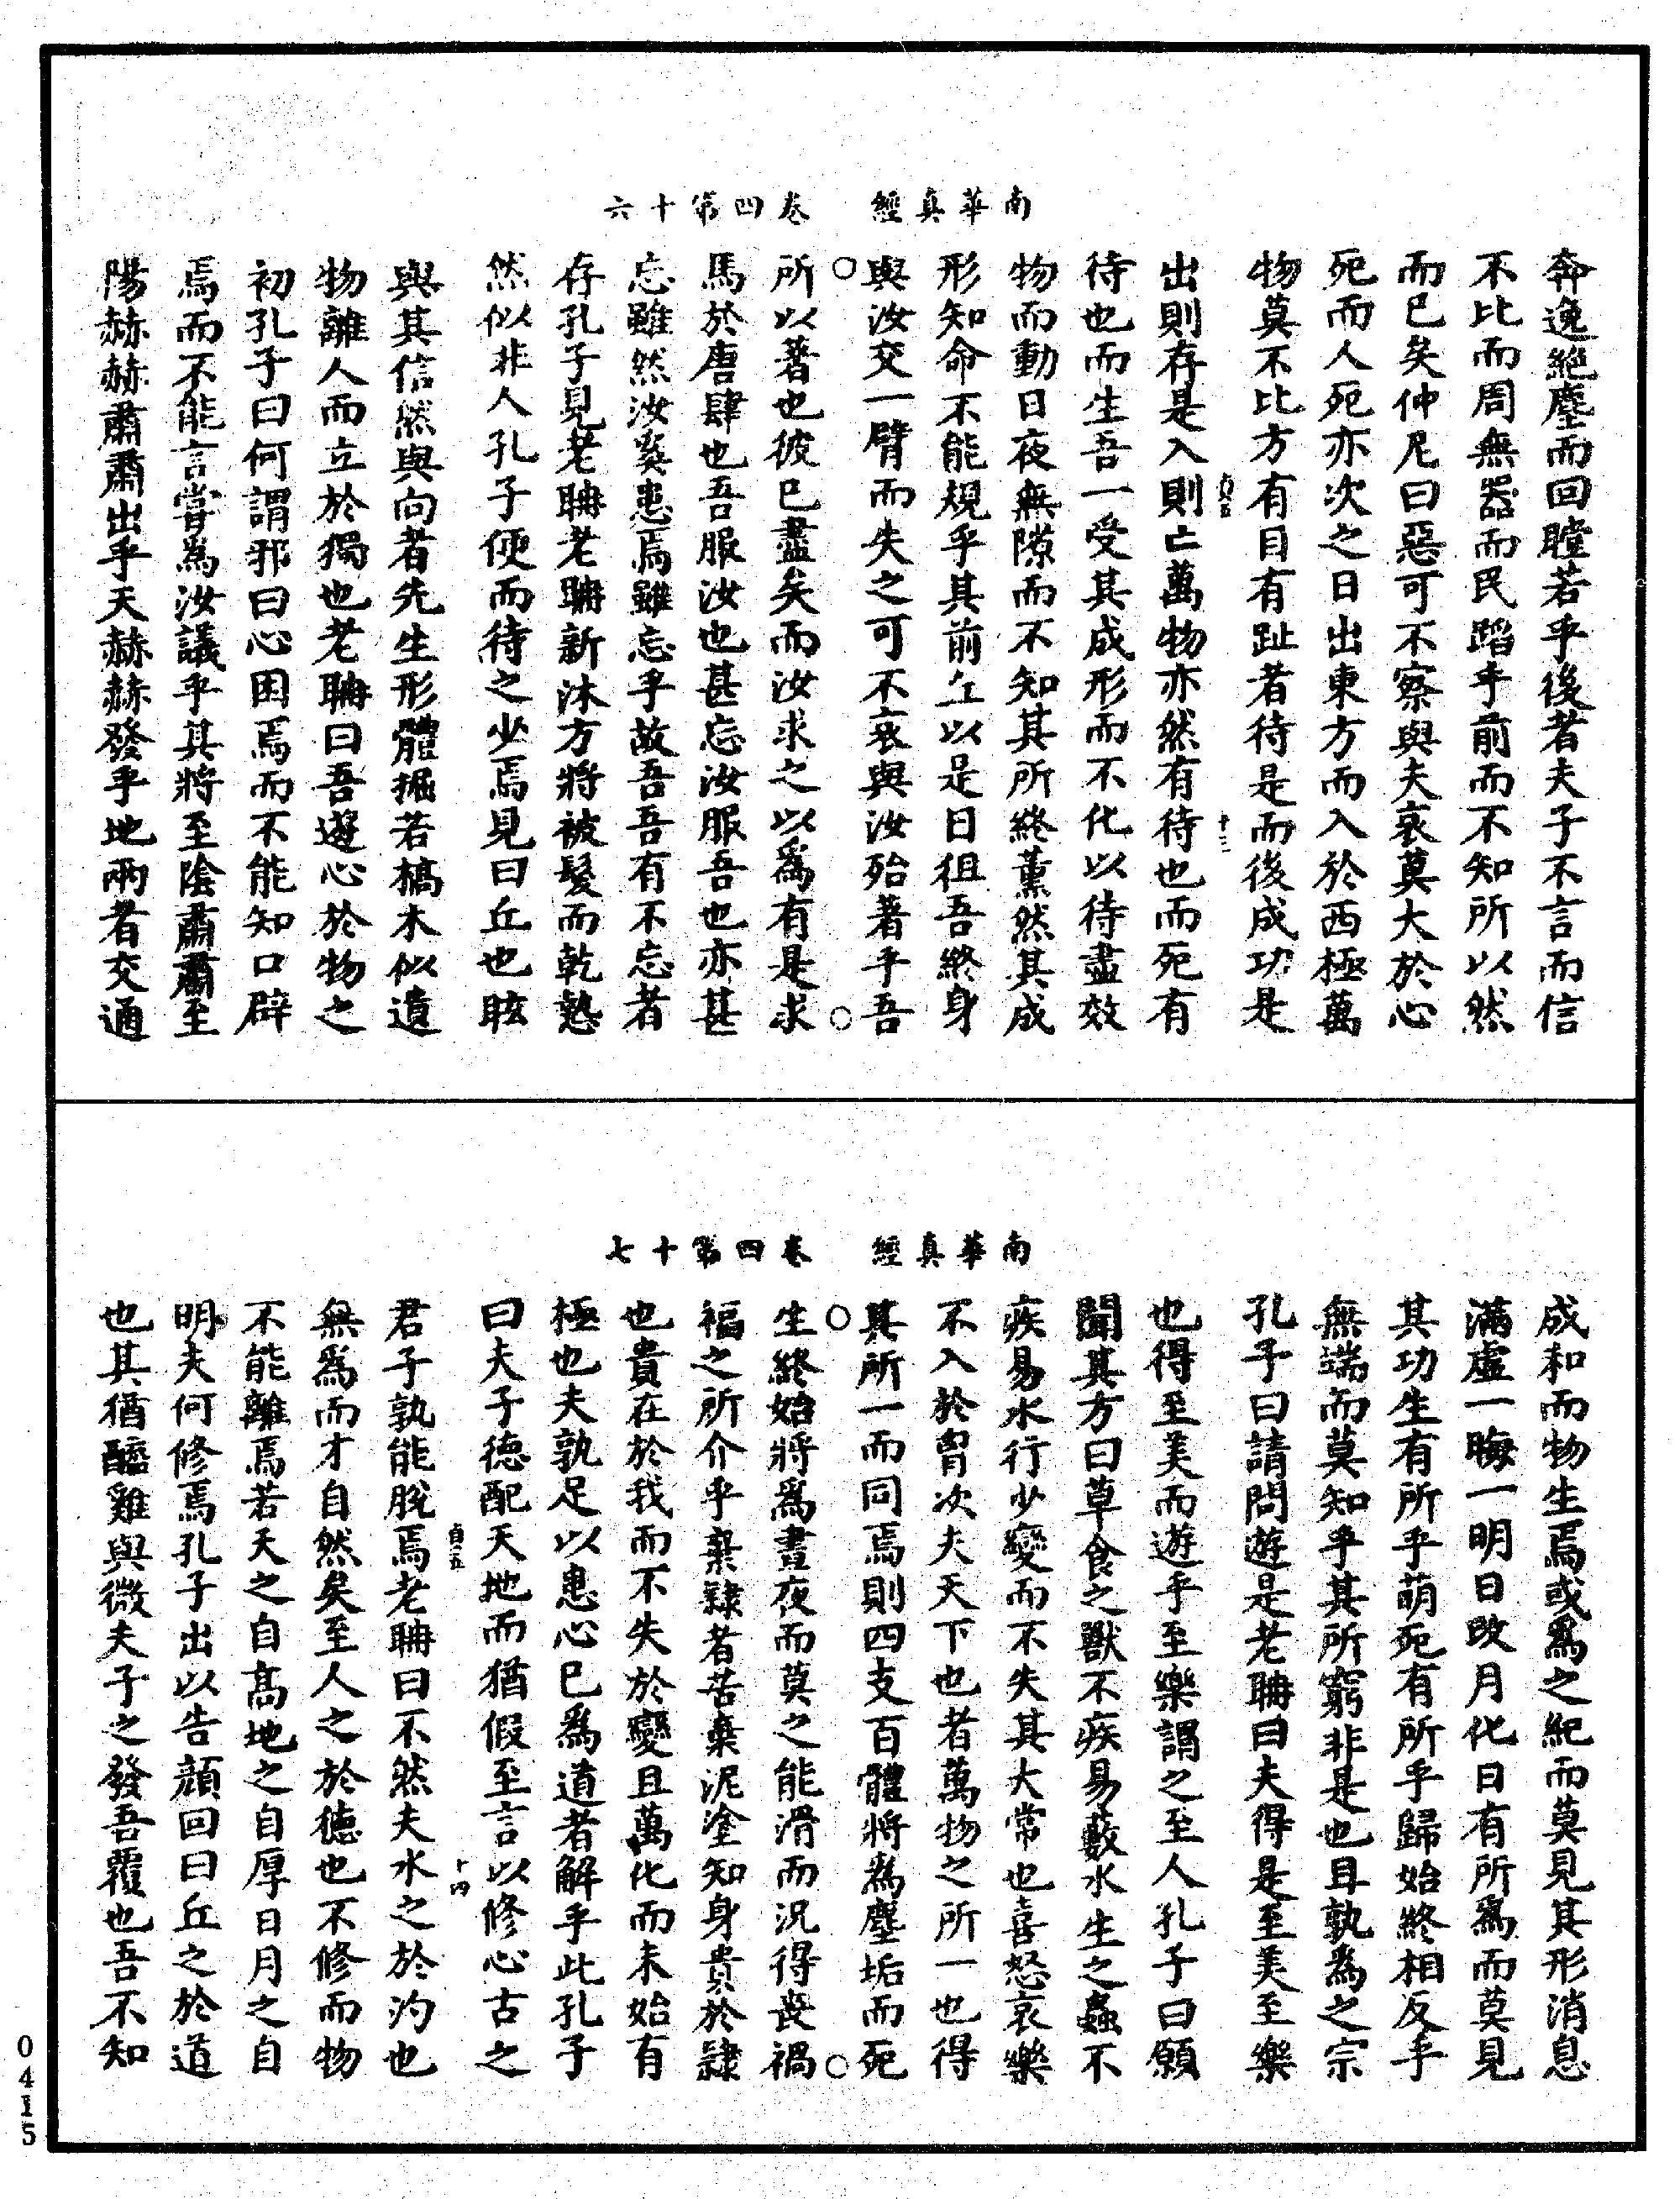 南華真經　卷四第十六
奔逸絕塵而回瞠若乎後者夫子不言而信
不比而周無器而民蹈乎前而不知所以然
而已矣仲尼曰惡可不察與夫哀莫大於心
死而人死亦次之日出東方而入於西極萬
物莫不比方有目有趾者待是而後成功是
貞五　十三
出則存是入則亡萬物亦然有待也而死有
待也而生吾一受其成形而不化以待盡效
物而動日夜無隙而不知其所終薰然其成
形知命不能規乎其前丘以是日徂吾終身
與汝交一臂而失之可不哀與汝殆著乎吾
所以著也彼已盡矣而汝求之以為有是求
馬於唐肆也吾服汝也甚忘汝服吾也亦甚
忘雖然汝奚患焉雖忘乎故吾吾有不忘者
存孔子見老聃老聃新沐方將被髮而乾慹
然似非人孔子便而待之少焉見曰丘也眩
與其信然與向者先生形體掘若槁木似遺
物離人而立於獨也老聃曰吾遊心於物之
初孔子曰何謂邪曰心困焉而不能知口辟
焉而不能言嘗為汝議乎其將至陰肅肅至
陽赫赫肅肅出乎天赫赫發乎地兩者交通
南華真經　卷四第十七
成和而物生焉或為之紀而莫見其形消息
滿虛一晦一明日改月化日有所為而莫見
其功生有所乎萌死有所乎歸始終相反乎
無端而莫知乎其所窮非是也且孰為之宗
孔子曰請問遊是老聃曰夫得是至美至樂
也得至美而遊乎至樂謂之至人孔子曰願
聞其方曰草食之獸不疾易藪水生之蟲不
疾易水行少變而不失其大常也喜怒哀樂
不入於胷次夫天下也者萬物之所一也得
其所一而同焉則四支百體將為塵垢而死
生終始將為晝夜而莫之能滑而況得喪禍
福之所介乎棄隸者若棄泥塗知身貴於隸
也貴在於我而不失於變且萬化而未始有
極也夫孰足以患心已為道者解乎此孔子
曰夫子德配天地而猶假至言以修心古之
貞五　十四
君子孰能脫焉老聃曰不然夫水之於汋也
無為而才自然矣至人之於德也不修而物
不能離焉若天之自高地之自厚日月之自
明夫何修焉孔子出以告顏回曰丘之於道
也其猶醯雞與微夫子之發吾覆也吾不知
0415